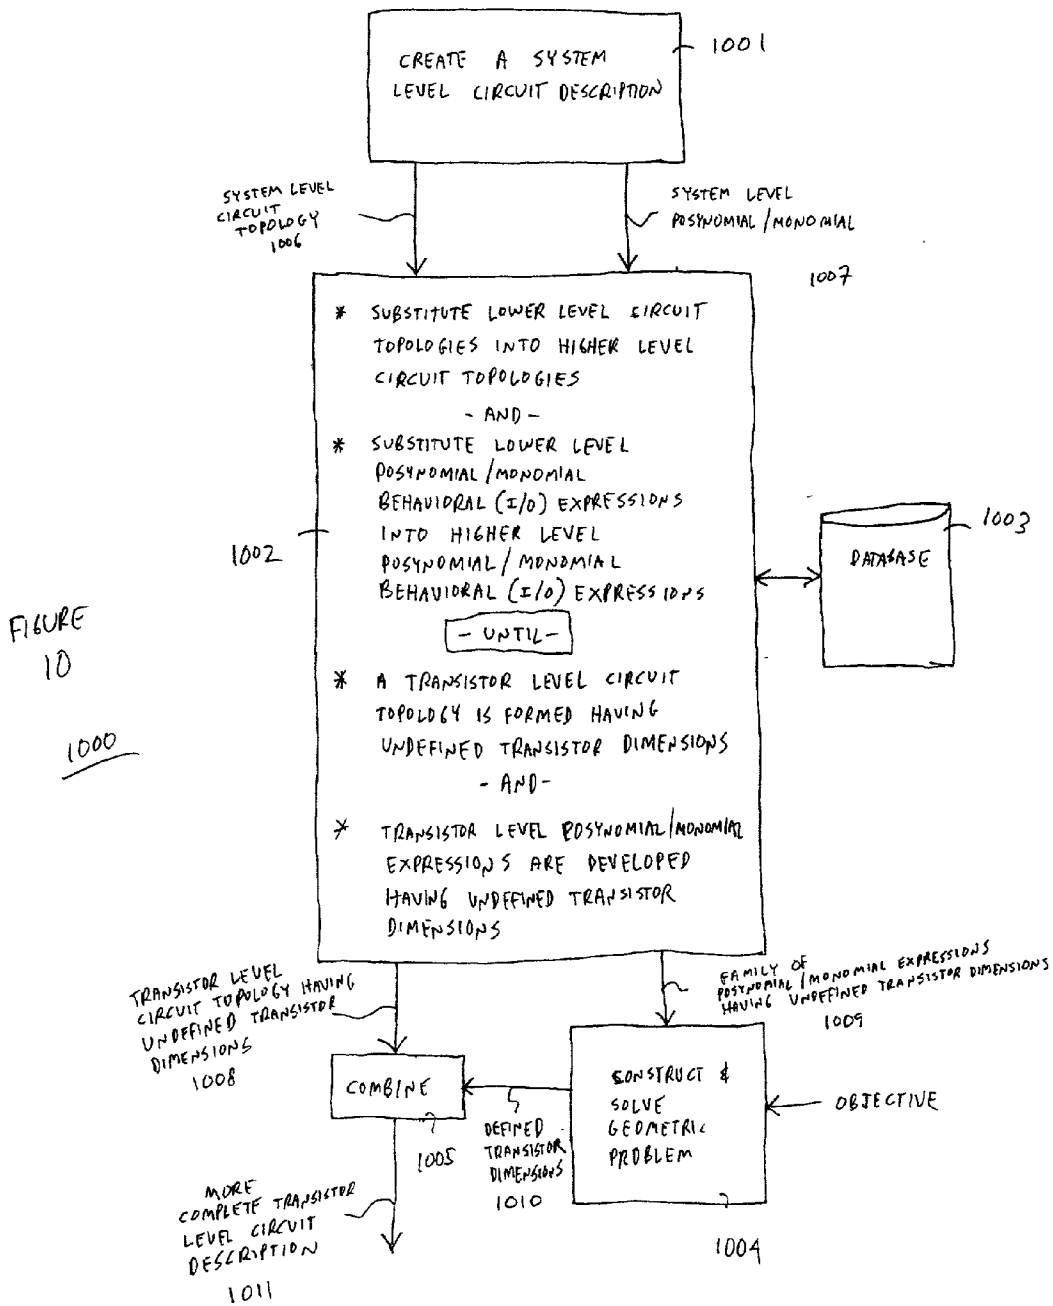 CREATE A SYSTEM
LEVEL CIRCUIT DESCRIPTION
1001
SYSTEM LEVEL
CIRCUIT
TOPOLOGY
1006
SYSTEM LEVEL
POSYNOMIAL/MONOMIAL
1007
* SUBSTITUTE LOWER LEVEL CIRCUIT
TOPOLOGIES INTO HIGHER LEVEL
CIRCUIT TOPOLOGIES
- AND -
* SUBSTITUTE LOWER LEVEL
POSYNOMIAL/MONOMIAL
BEHAVIORAL (I/O) EXPRESSIONS
INTO HIGHER LEVEL
POSYNOMIAL/MONOMIAL
BEHAVIORAL (I/O) EXPRESSIONS
- UNTIL -
* A TRANSISTOR LEVEL CIRCUIT
TOPOLOGY IS FORMED HAVING
UNDEFINED TRANSISTOR DIMENSIONS
- AND -
* TRANSISTOR LEVEL POSYNOMIAL/MONOMIAL
EXPRESSIONS ARE DEVELOPED
HAVING UNDEFINED TRANSISTOR
DIMENSIONS
1002
1003
DATABASE
FIGURE
10
1000
TRANSISTOR LEVEL
CIRCUIT TOPOLOGY HAVING
UNDEFINED TRANSISTOR
DIMENSIONS
1008
FAMILY OF
POSYNOMIAL/MONOMIAL EXPRESSIONS
HAVING UNDEFINED TRANSISTOR DIMENSIONS
1009
COMBINE
1005
DEFINED
TRANSISTOR
DIMENSIONS
1010
CONSTRUCT &
SOLVE
GEOMETRIC
PROBLEM
OBJECTIVE
1004
MORE
COMPLETE TRANSISTOR
LEVEL CIRCUIT
DESCRIPTION
1011